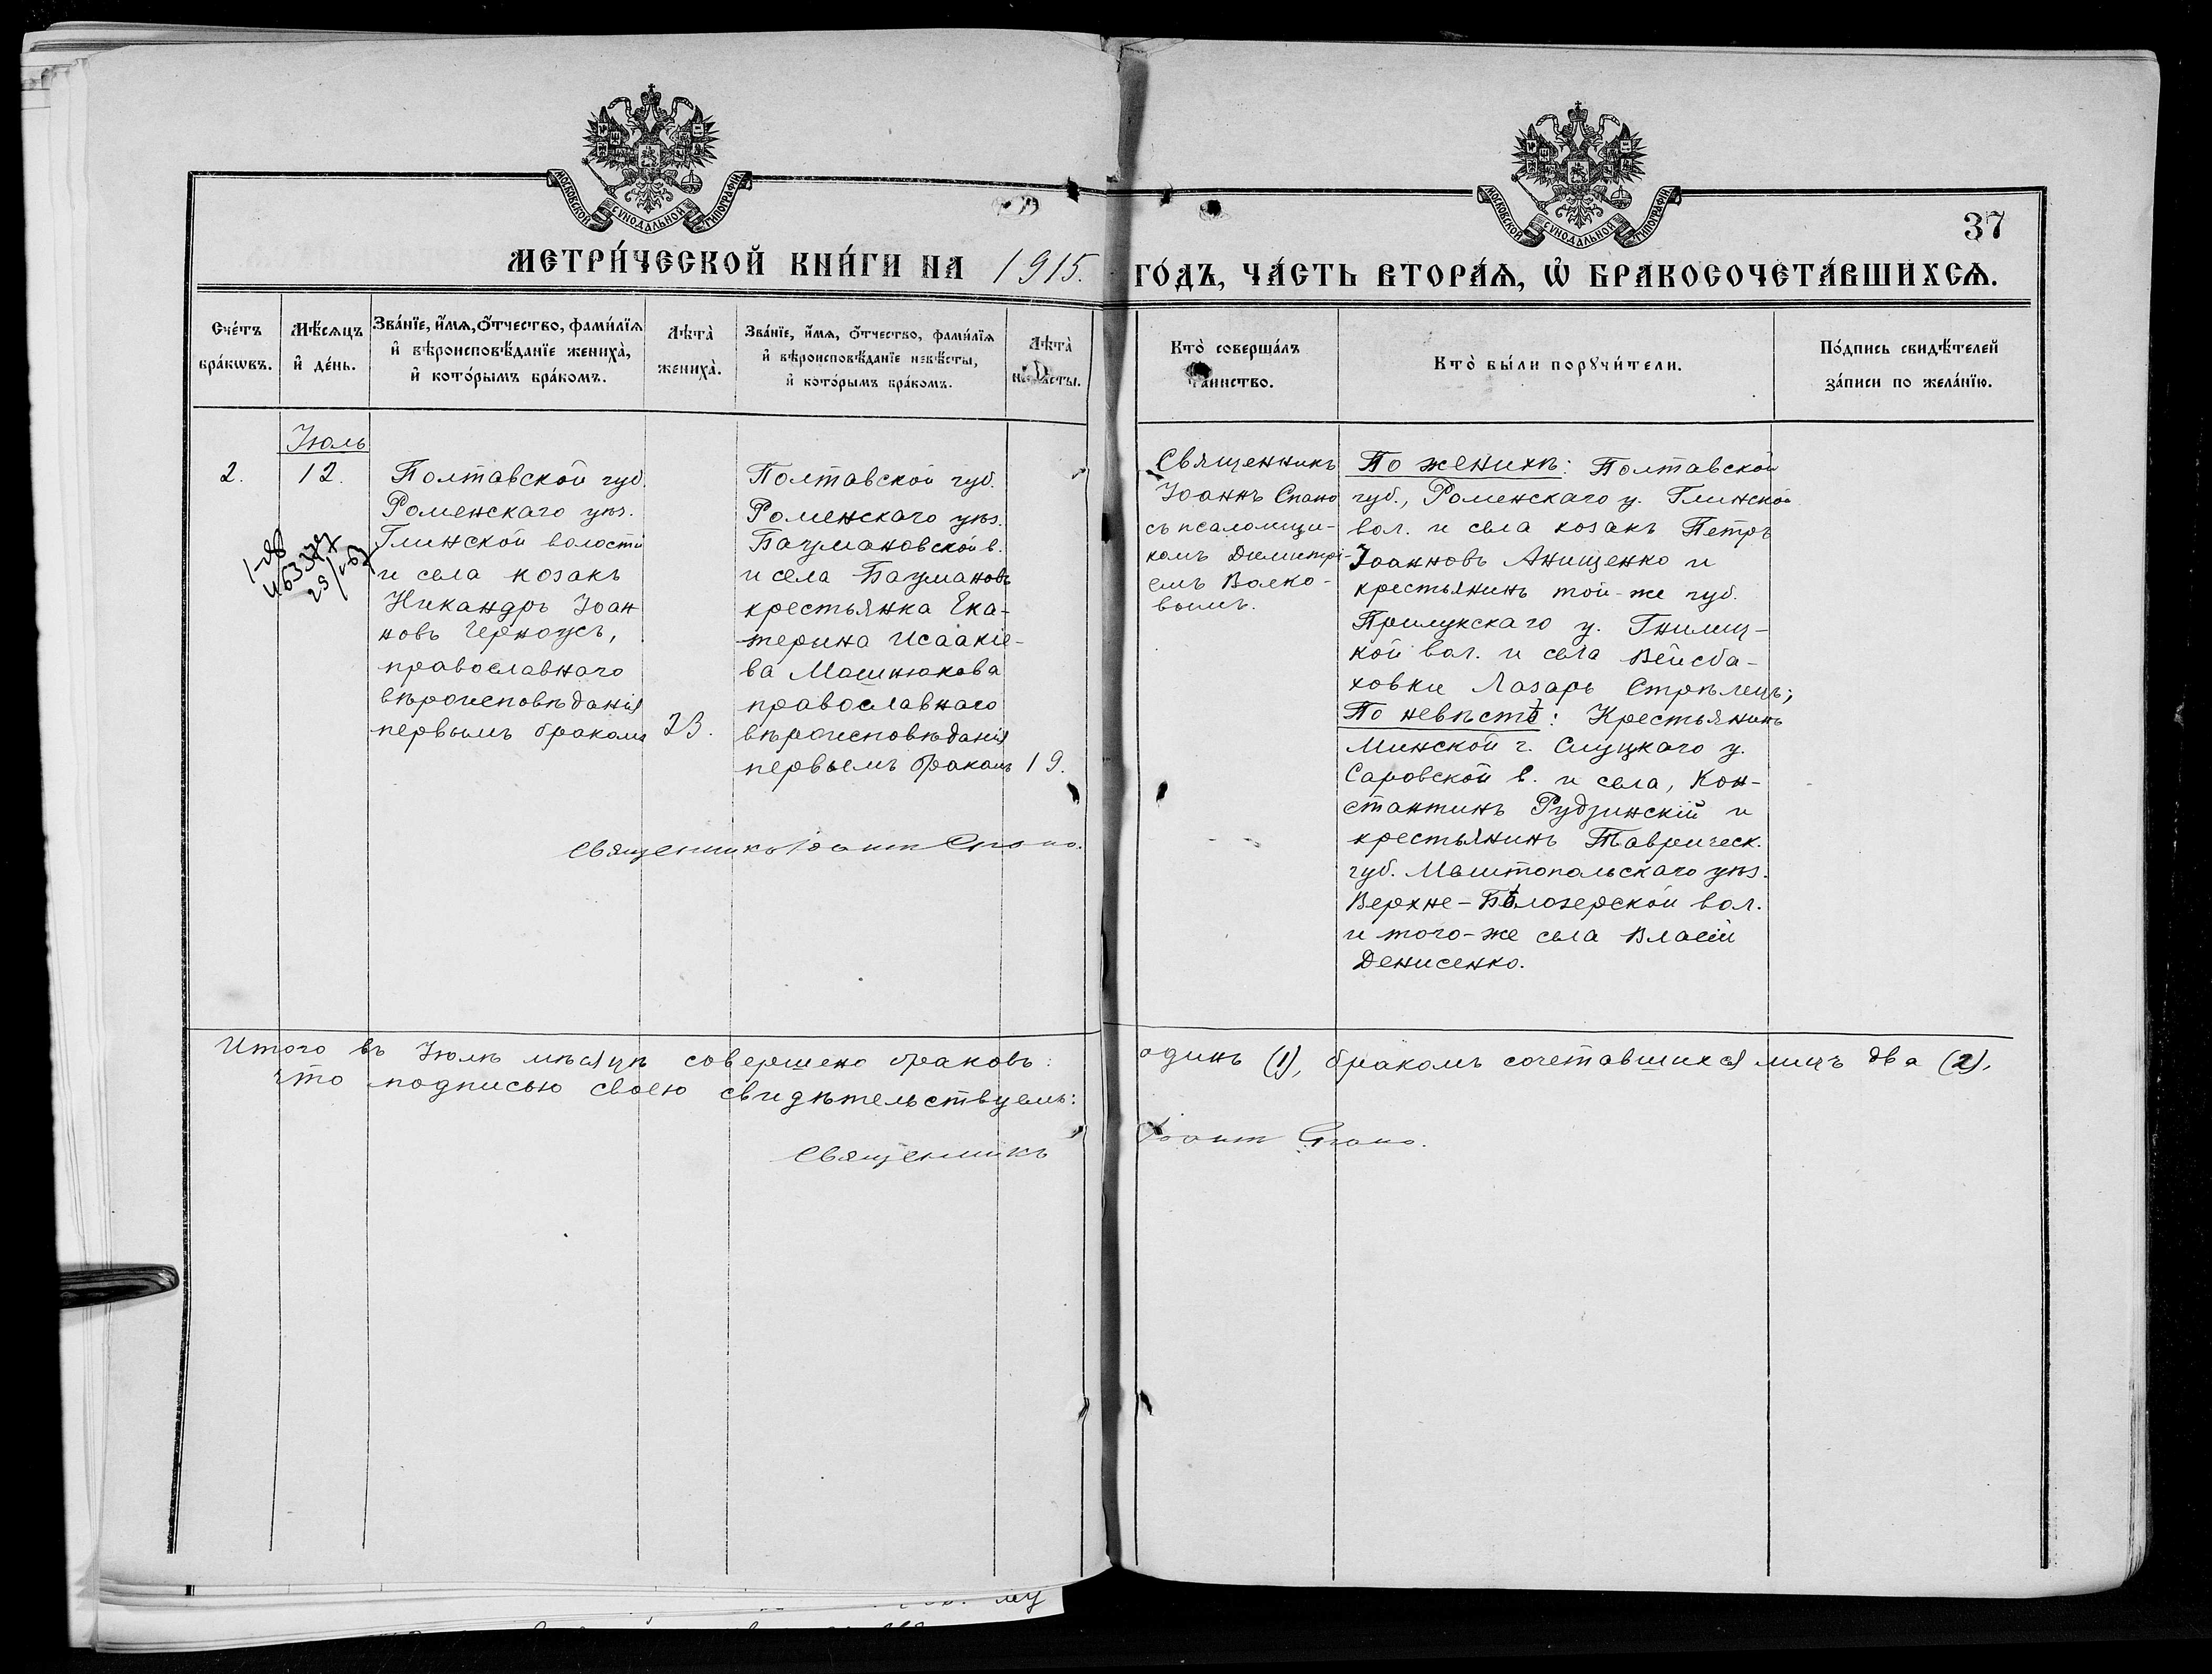 МОСКОВСКОЙ СѴНОДАЛЬНОЙ ТИПОГРАФІИ
МОСКОВСКОЙ СѴНОДАЛЬНОЙ ТИПОГРАФІИ
37
МЕТРИ́ЧЕСКОЙ КНИ́ГИ НА 1915. ГО́ДЪ, ЧА́СТЬ ВТОРА́Ѧ, Ѡ҆ БРАКОСОЧЕТА́ВШИХСѦ.
Сче́тъ
бра́кѡвъ.
Мѣ́сяцъ
и҆ де́нь.
Зва́нїе, и҆́мѧ, ѻ҆́тчество, фами́лїѧ
и҆ вѣроисповѣ́данїе жениха̀,
и҆ кото́рымъ бра́комъ.
Лѣта̀
жениха̀.
Зва́нїе, и҆́мѧ, ѻ҆́тчество, фами́лїѧ
и҆ вѣроисповѣ́данїе невѣ́сты,
и҆ кото́рымъ бра́комъ.
Лѣта̀
невѣ́сты.
Кто̀ соверша́лъ
та́инство.
Кто̀ бы́ли порꙋчи́тели.
По́дпись свидѣ́телей
за́писи по жела́нїю.
Іюль
2.
12.
Полтавской губ.
Роменскаго уѣз.
Глинской волости
и села козакъ
Никандръ Іоан
новъ Черноусъ,
православнаго
вѣроисповѣданія
первымъ бракомъ
23.
Полтавской губ.
Роменскаго уѣз.
Бацмановской в.
и села Бацмановъ
крестьянка Ека-
терина Исаакіе-
ва Мошнюкова
православнаго
вѣроисповѣданія
первымъ бракомъ
19.
Священникъ Іоаннъ Спано.
Священникъ
Іоаннъ Спано
съ псаломщи-
комъ Димитрі-
емъ Волко-
вымъ.
По женихѣ: Полтавской
губ., Роменскаго у. Глинской
вол. и села козакъ Петръ
Іоанновъ Анищенко и
крестьянинъ той-же губ.
Прилукскаго у. Гнилиц-
кой вол. и села Вейсба-
ховки Лазарь Стрѣлецъ;
По невѣстѣ: Крестьянинъ
Минской г. Слуцкаго у.
Саровской в. и села, Кон-
стантинъ Рудзинскій и
крестьянинъ Таврическ.
губ. Мелитопольскаго уѣз.
Верхне-Бѣлозерской вол.
и того-же села Власій
Денисенко.
Итого въ Іюлѣ мѣсяцѣ совершено браковъ: одинъ (1), бракомъ сочетавшихся лицъ два (2),
что подписью своею свидѣтельствуемъ:
Священникъ Іоаннъ Спано.